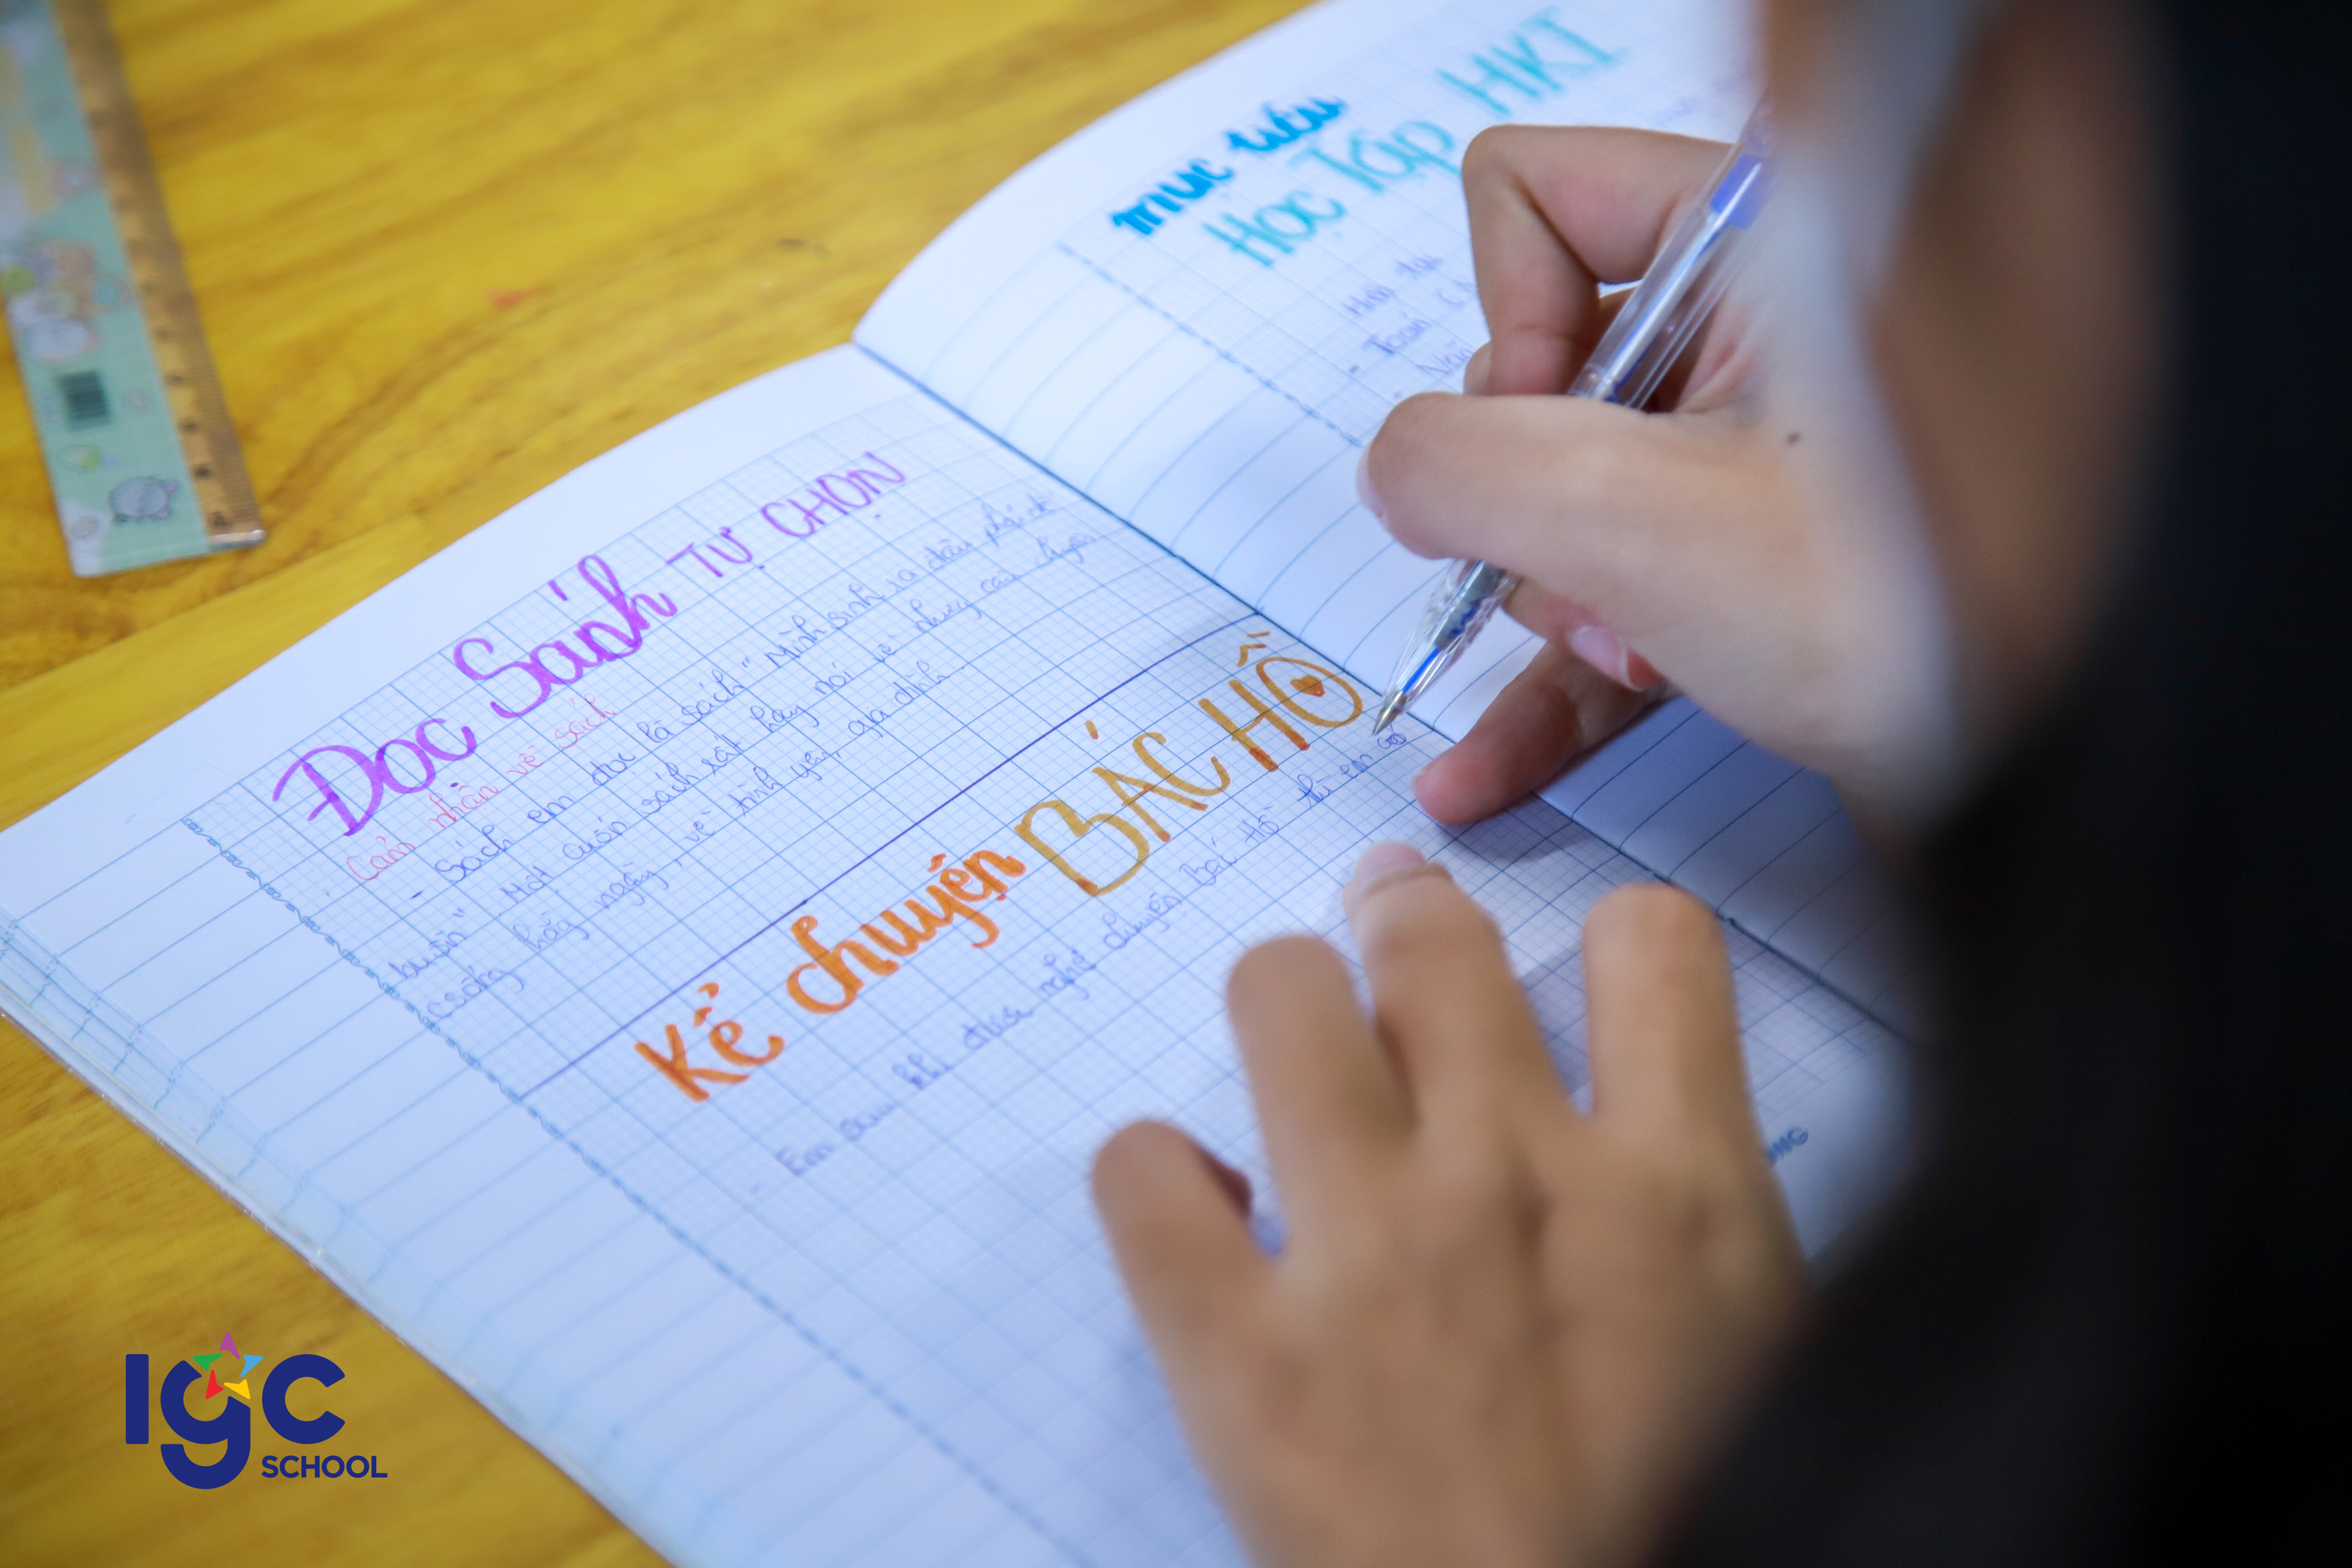 ĐỌC Sách TỰ CHỌN
Cảm nhận về sách
- Sách em đọc là sách "Mình sinh ra đâu phải để
buồn". Một cuốn sách rất hay nói về những câu chuyện
csống hằg ngày, về tình yêu, gia đình.
Kể chuyện BÁC HỒ
- Em sau khi được nghe chuyện Bác Hồ thì em có
mục tiêu
Học Tập HKI
- Toán
Văn
IGC
SCHOOL